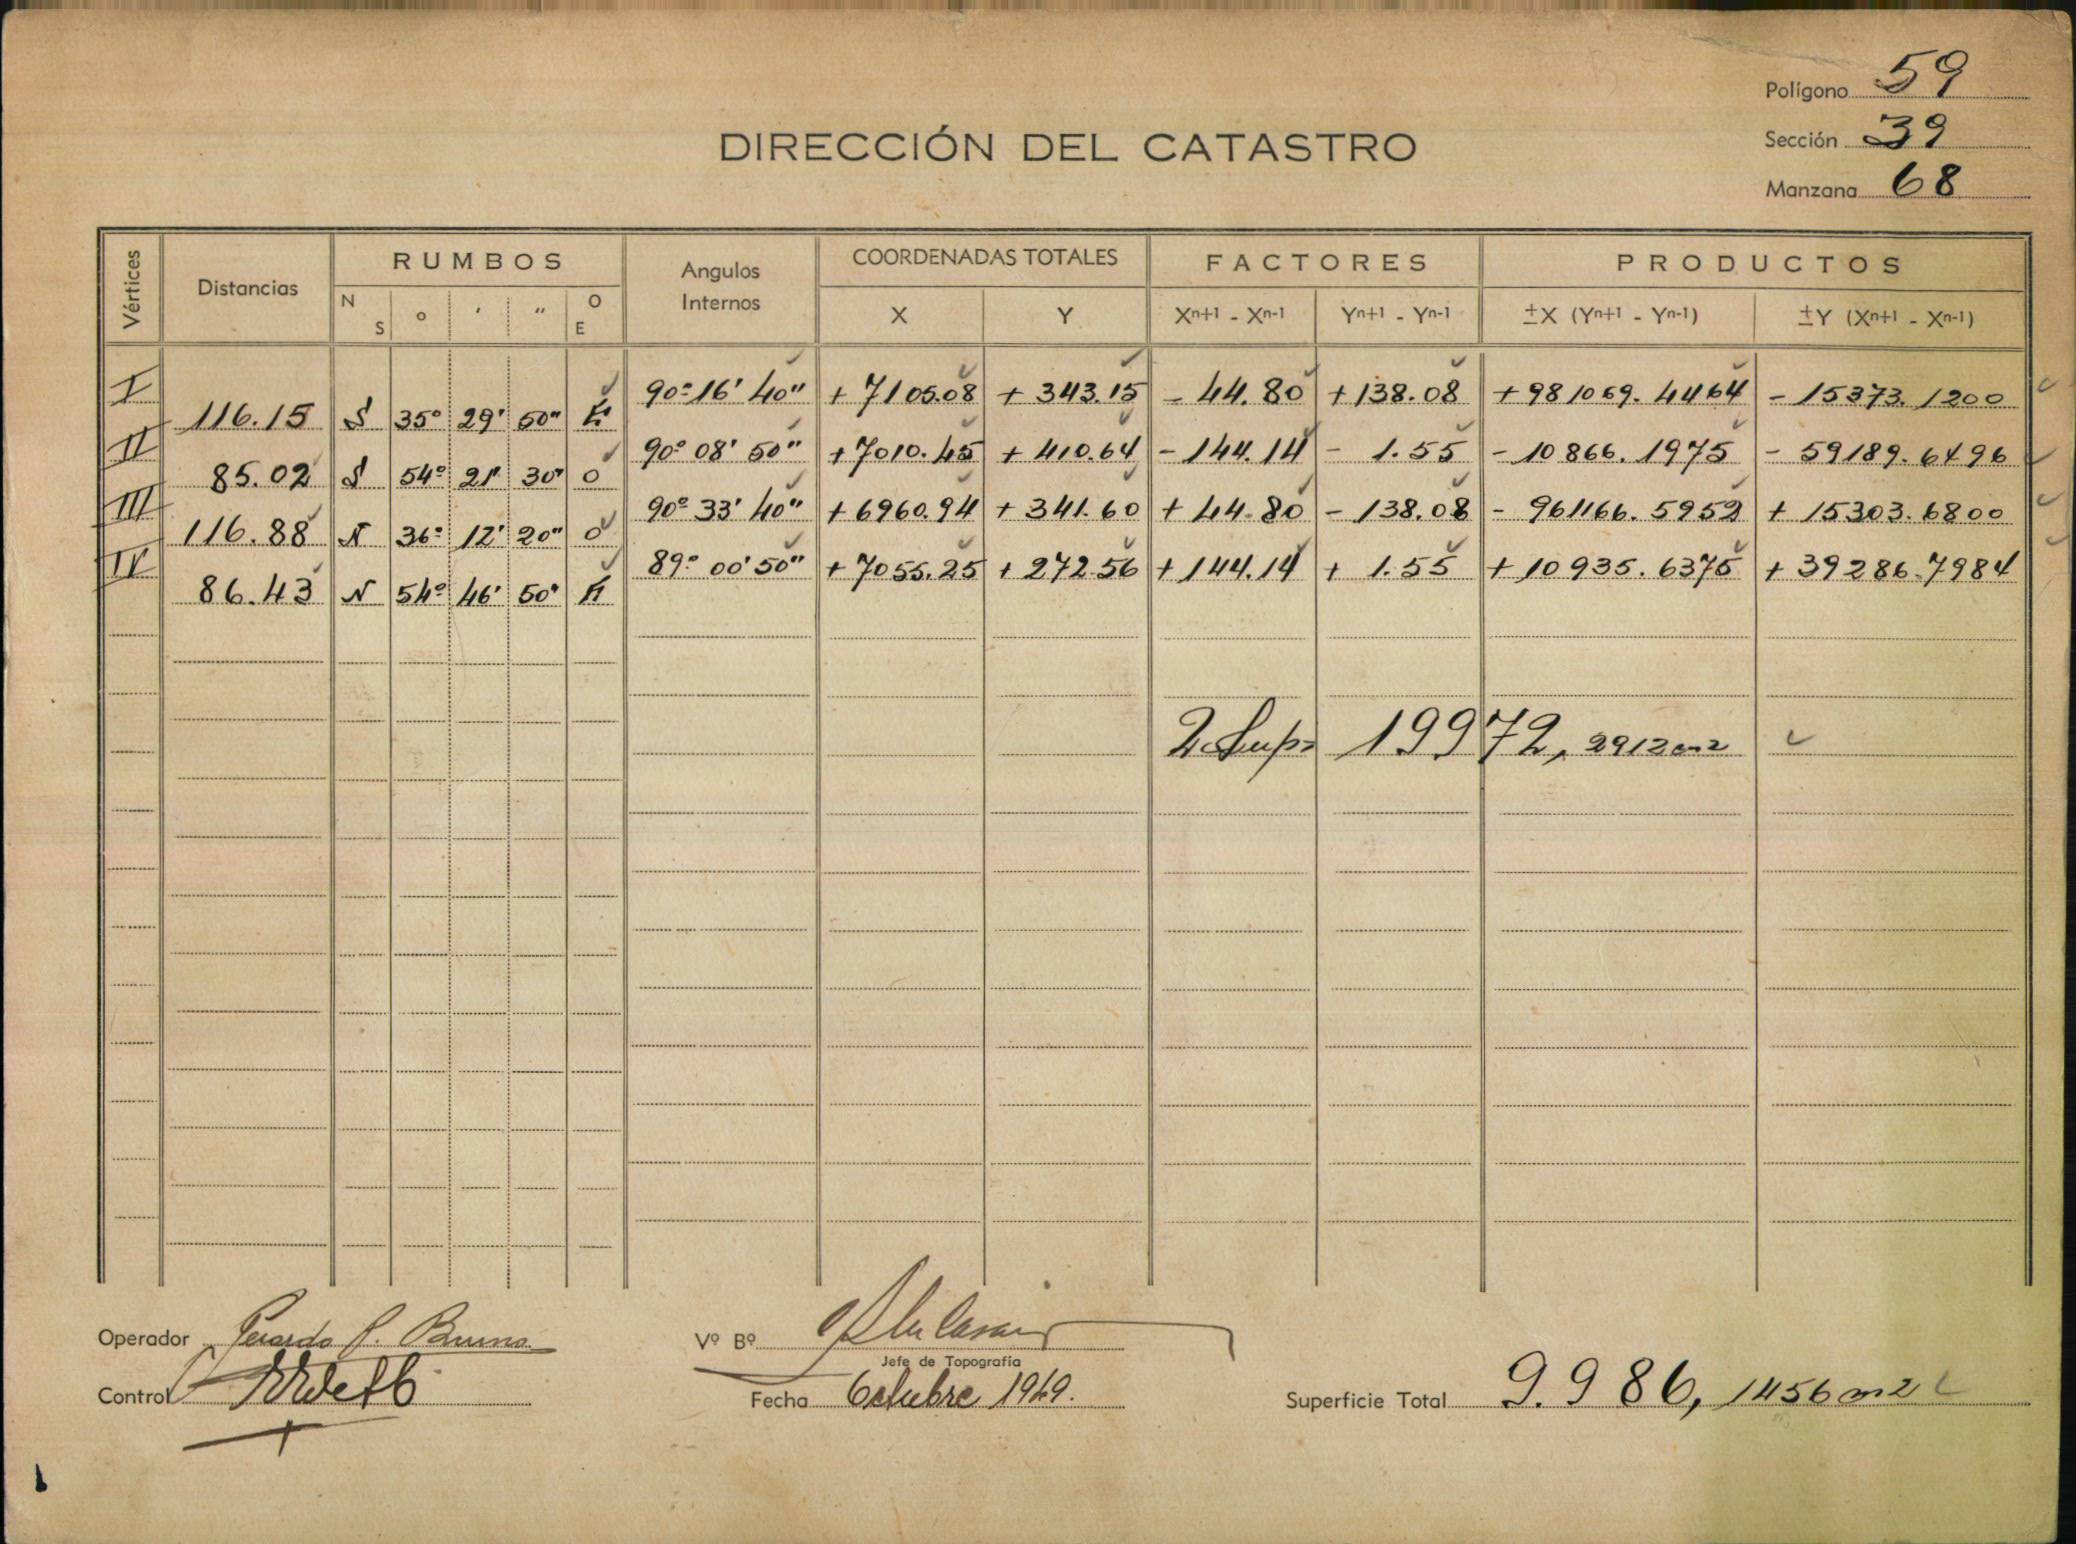 Polígono 59
DIRECCIÓN DEL CATASTRO
Sección 39
Manzana 68
Vértices Distancias RUMBOS Angulos Internos COORDENADAS TOTALES FACTORES PRODUCTOS
N S o ′ ″ O E X Y Xn+1 - Xn-1 Yn+1 - Yn-1 ±X (Yn+1 - Yn-1) ±Y (Xn+1 - Xn-1)
I 90º 16' 40" + 7105.08 + 343.15 - 44.80 + 138.08 + 981069.4464 - 15373.1200
116.15 S 35º 29' 50" E
II 90º 08' 50" + 7010.45 + 410.64 - 144.14 - 1.55 - 10866.1975 - 59189.6496
85.02 S 54º 21' 30" O
III 90º 33' 40" + 6960.94 + 341.60 + 44.80 - 138.08 - 961166.5952 + 15303.6800
116.88 N 36º 12' 20" O
IV 89º 00' 50" + 7055.25 + 272.56 + 144.14 + 1.55 + 10935.6375 + 39286.7984
86.43 N 54º 46' 50" E
2 Sup= 19972,2912 m2
Operador Gerardo P. Bruno
Vº Bº
Jefe de Topografía
Control
Fecha Octubre 1949.
Superficie Total 9.986,1456 m2